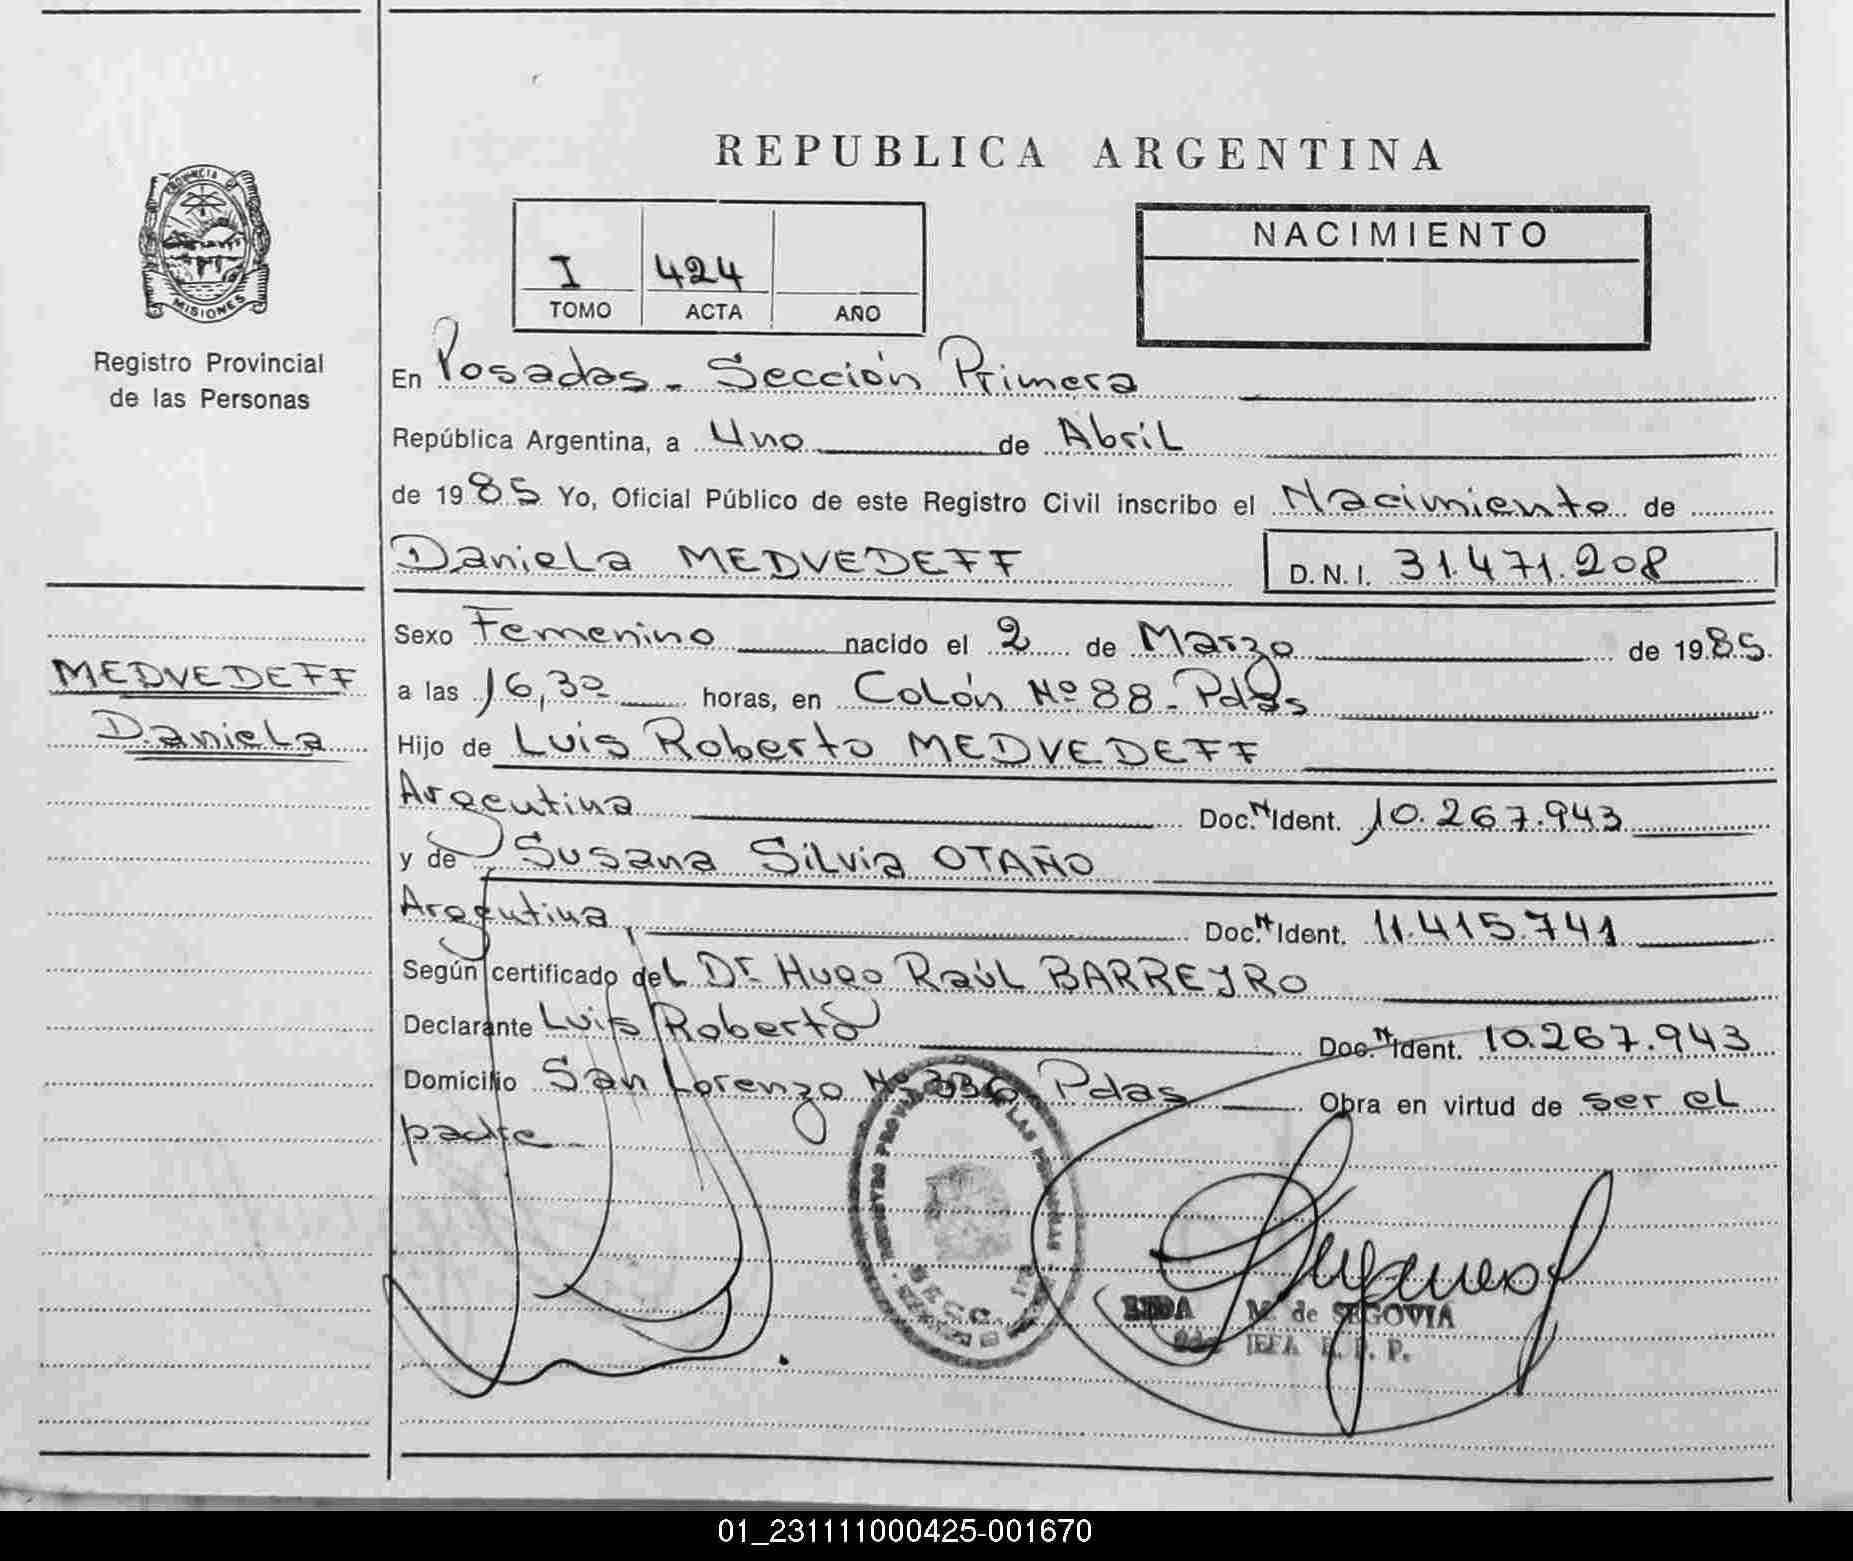 REPUBLICA ARGENTINA
PROVINCIA DE
MISIONES
Registro Provincial
de las Personas
I 424
TOMO ACTA AÑO
NACIMIENTO
En Posadas - Sección Primera
República Argentina, a Uno de Abril
de 1985 Yo, Oficial Público de este Registro Civil inscribo el Nacimiento de
Daniela MEDVEDEFF D.N.I. 31.471.208
MEDVEDEFF
Daniela
Sexo Femenino nacido el 2 de Marzo de 1985.
a las 16,30 horas, en Colón Nº 88 - Pdas
Hijo de Luis Roberto MEDVEDEFF
Argentina Doc. N Ident. 10.267.943
y de Susana Silvia OTAÑO
Argentina, Doc. N Ident. 11.415.741
Según certificado del Dr Hugo Raúl BARREYRO
Declarante Luis Roberto Doc. N Ident. 10.267.943
Domicilio San Lorenzo Nº 336 Pdas Obra en virtud de ser el
padre -
SECC. 1ª
M. de SEGOVIA
JEFA R. P. P.
01_231111000425-001670